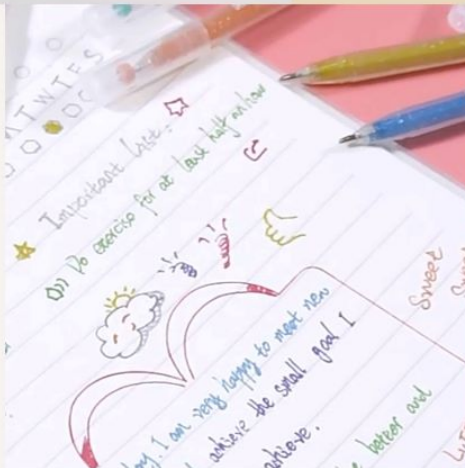 MTWTFS
Important List:
Do exercise for at least half an hour
I am very happy to meet new
achieve the small goal I
achieve.
better and
Sweet